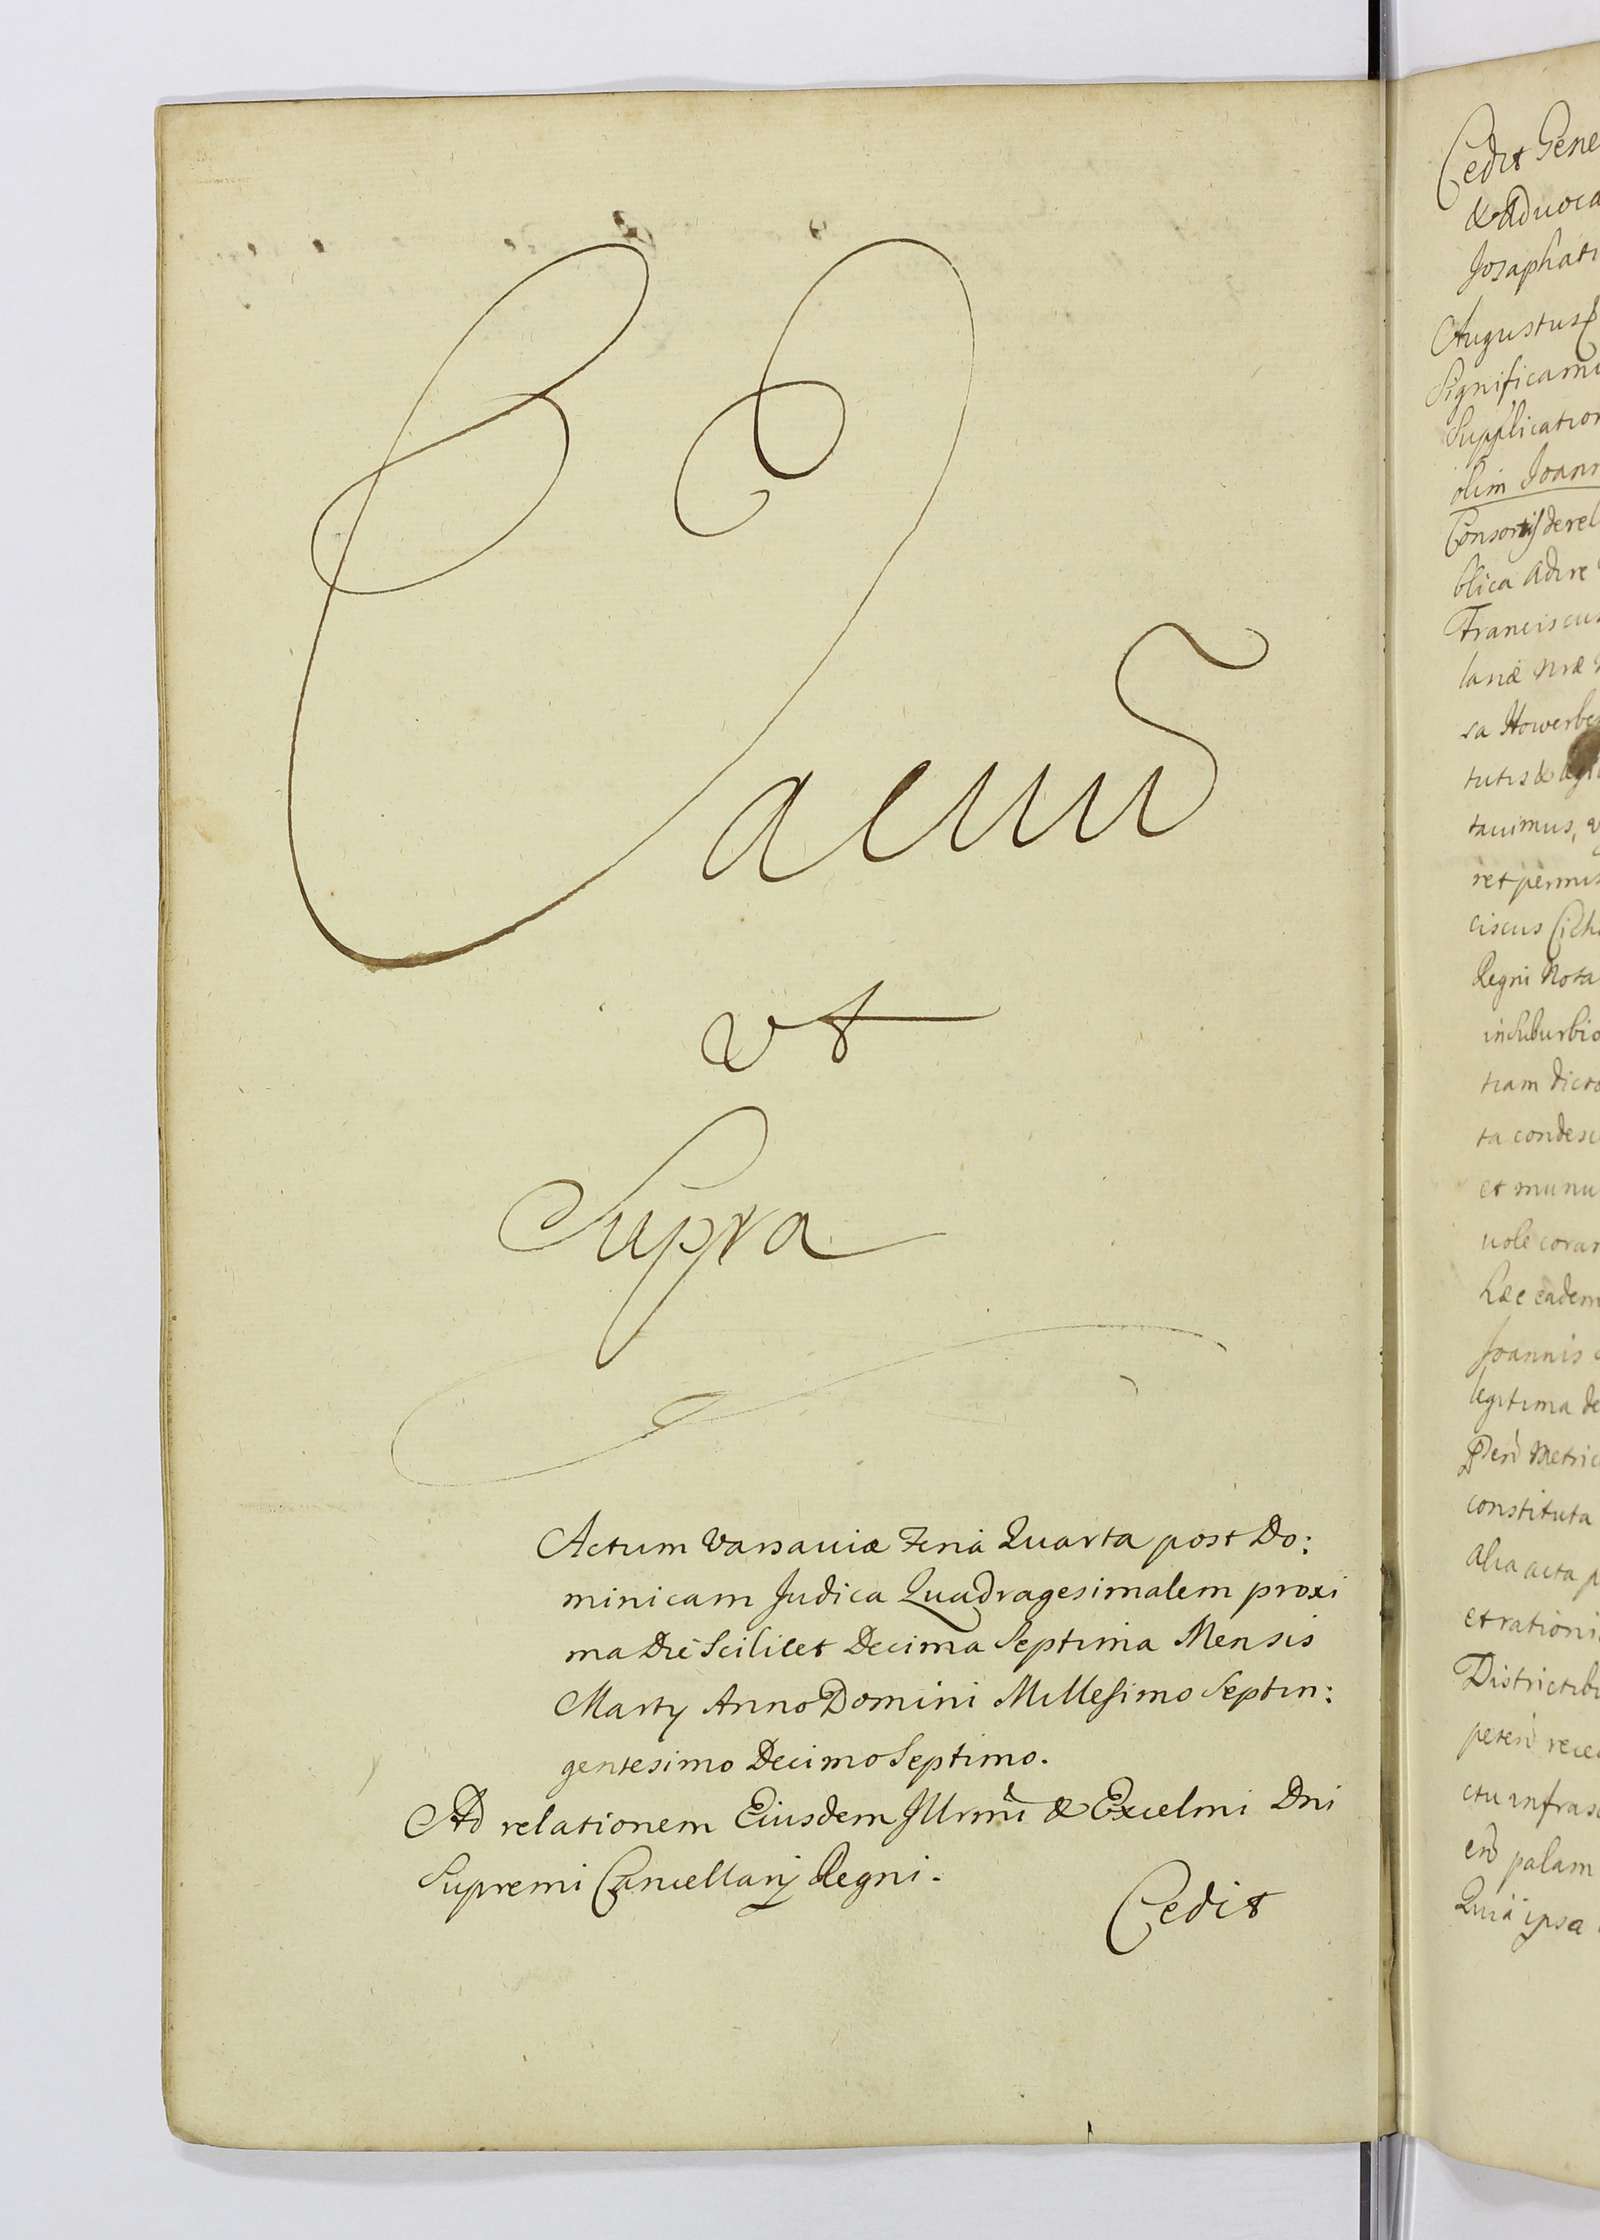 Vacuũ
vt
Supra
Actum Varsaviæ Feria Quarta post Do:
minicam Judica Quadragesimalem proxi
ma Die Scilicet Decima Septima Mensis
Marty Anno Domini Millesimo Septin:
gentesimo Decimo Septimo.
Ad relationem Eiusdem Illrmi & Excelmi Dni
Supremi Cancellarij Regni.
Cedit
Cedit Gene
& Advoca
Josaphati
Augustus
Significamu
Supplication
olim Joann
Consortis derel
blica adire
Franciscus
lanæ nræ
sa Howerbe
tutis &
tauimus,
ret permis
ciscus Cich
Regni Nota
in suburbio
tiam dicto
ta condesc
et munu
uole coram
hæc eadem
Joannis
legitima de
Metric
constituta
alia acta p
et rationi
Districtibu
peten rece
ctu infras
en palam
Quia ipsa